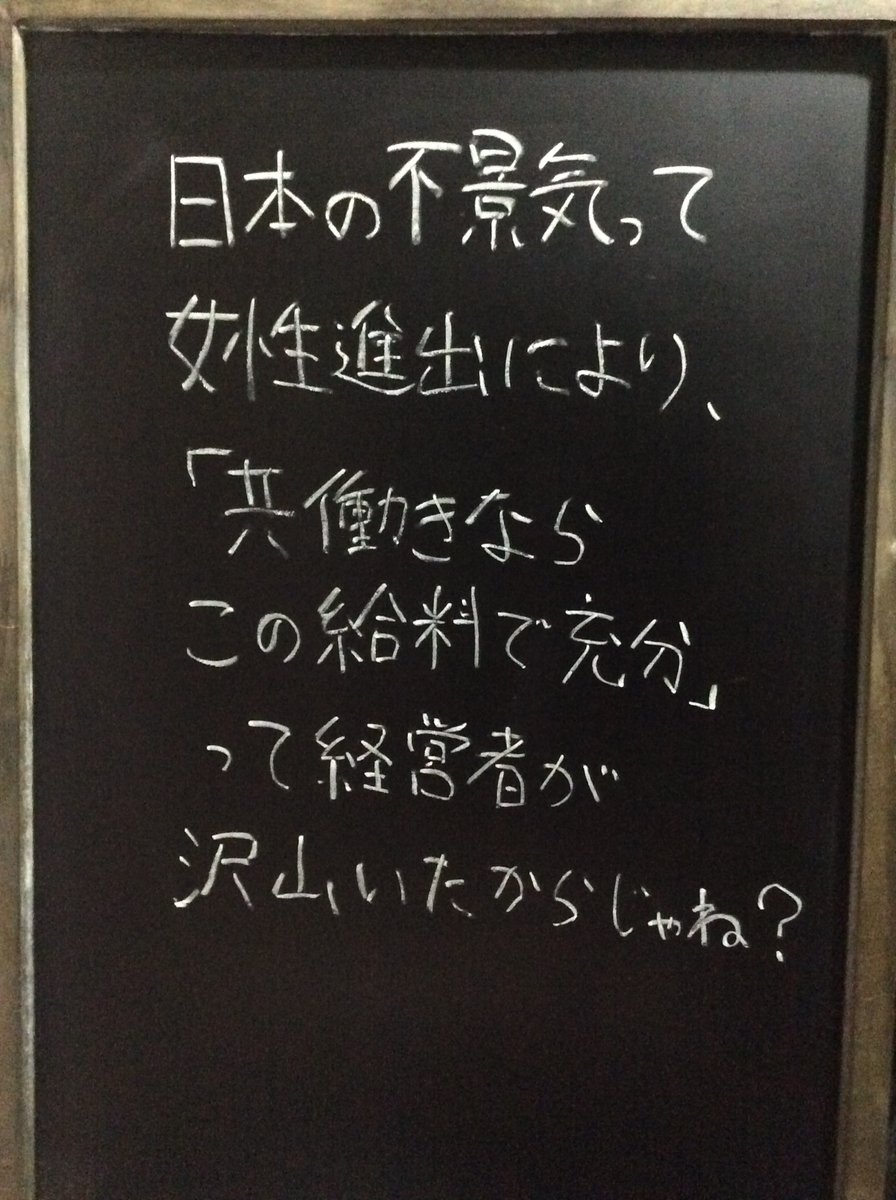 日本の不景気って
女性進出により、
「共働きなら
この給料で充分」
って経営者が
沢山いたからじゃね?